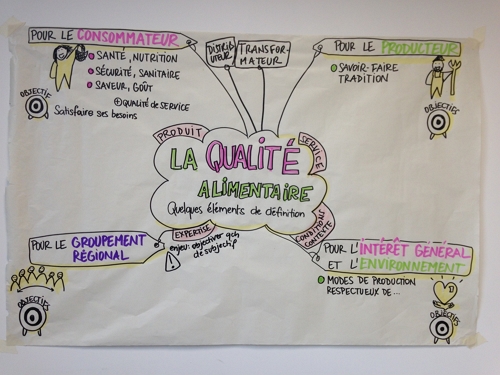 POUR LE CONSOMMATEUR
SANTÉ, NUTRITION
SÉCURITÉ, SANITAIRE
SAVEUR, GOÛT
QUALITÉ DE SERVICE
OBJECTIF
Satisfaire ses besoins
DISTRIB-
UTEUR
TRANSFOR-
MATEUR
POUR LE PRODUCTEUR
SAVOIR-FAIRE
TRADITION
OBJECTIFS
PRODUIT
SERVICE
LA QUALITÉ
ALIMENTAIRE
Quelques éléments de définition
EXPERTISE
enjeu: objectiver qch
de subjectif
CONDITIONS
CONTEXTE
POUR LE GROUPEMENT
RÉGIONAL
OBJECTIFS
POUR L'INTÉRÊT GÉNÉRAL
ET L'ENVIRONNEMENT
MODES DE PRODUCTION
RESPECTUEUX DE...
OBJECTIFS